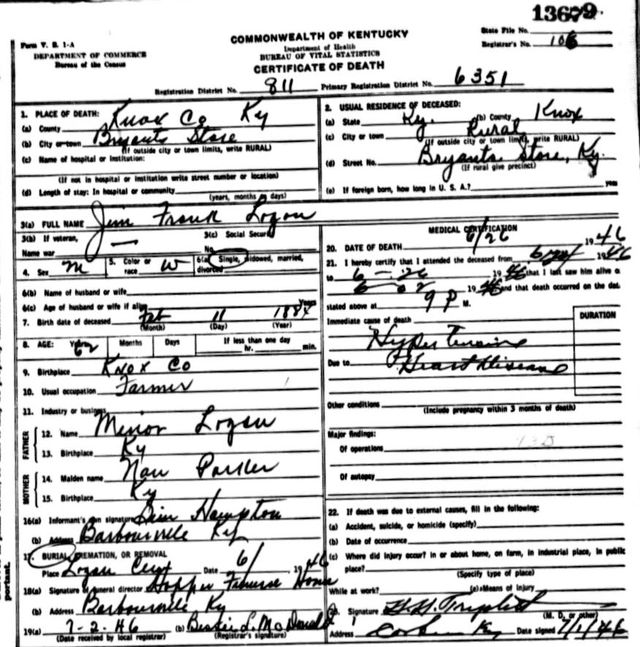 13679
Form V. S. 1-A
COMMONWEALTH OF KENTUCKY
State File No.
DEPARTMENT OF COMMERCE
Department of Health
Registrar's No. 106
Bureau of the Census
BUREAU OF VITAL STATISTICS
CERTIFICATE OF DEATH
Registration District No. 811 Primary Registration District No. 6351
1. PLACE OF DEATH:
(a) County Knox Co Ky
(b) City or town Bryants Store
(If outside city or town limits, write RURAL)
(c) Name of hospital or institution:
(If not in hospital or institution write street number or location)
(d) Length of stay: In hospital or community
(years, months or days)
2. USUAL RESIDENCE OF DECEASED:
(a) State Ky. (b) County Knox
(c) City or town Rural
(If outside city or town limits, write RURAL)
(d) Street No. Bryants Store, Ky.
(If rural give precinct)
(e) If foreign born, how long in U. S. A.? years
3(a) FULL NAME Jim Frank Logan
3(b) If veteran, 3(c) Social Security
Name war — No.
4. Sex M 5. Color or race W 6(a) Single, widowed, married, divorced
6(b) Name of husband or wife
6(c) Age of husband or wife if alive Years
7. Birth date of deceased Feb 11 1884
(Month) (Day) (Year)
8. AGE: Years 62 Months Days If less than one day
hr. min.
9. Birthplace Knox Co
10. Usual occupation Farmer
11. Industry or business
FATHER
12. Name Minor Logan
13. Birthplace Ky
MOTHER
14. Maiden name Nan
15. Birthplace Ky
16(a) Informant's own signature Hampton
(b) Address Barbourville Ky
17. BURIAL, CREMATION, OR REMOVAL
Place Logan Cem Date 6/ 1946
18(a) Signature of funeral director Hopper Funeral Home
(b) Address Barbourville Ky
19(a) 7-2-46 (b) L. McDonald
(Date received by local registrar) (Registrar's signature)
MEDICAL CERTIFICATION
20. DATE OF DEATH 6/26 1946
21. I hereby certify that I attended the deceased from 1946
to 6-26 1946 that I last saw him alive o
1946 and that death occurred on the dat
stated above at 9 P M.
DURATION
Immediate cause of death
Hypertensive
Due to Heart disease
Other conditions
(Include pregnancy within 3 months of death)
Major findings:
Of operations
Of autopsy
22. If death was due to external causes, fill in the following:
(a) Accident, suicide, or homicide (specify)
(b) Date of occurrence
(c) Where did injury occur? in or about home, on farm, in industrial place, in public
place?
(Specify type of place)
While at work? (e) Means of injury
23. Signature
(M. D. or other)
Address Corbin Ky Date signed 7/1/46
portant.